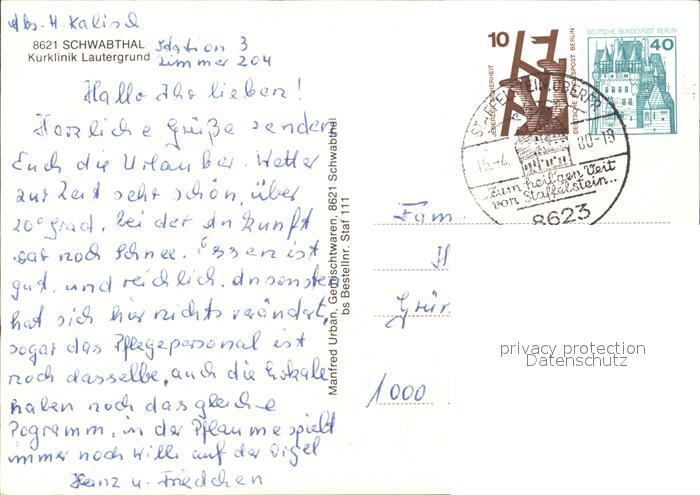 Abs. H. Kalisch
8621 SCHWABTHAL
Kurklinik Lautergrund
Station 3
Zimmer 204
Hallo Ihr lieben!
Herzliche Grüße senden
Euch die Urlauber. Wetter
zur Zeit sehr schön, über
20 grad, bei der Ankunft
gab noch Schnee. Essen ist
gut und reichlich. Ansonsten
hat sich hier nichts verändert,
sogar das Pflegepersonal ist
noch dasselbe, auch die Lokale
haben noch das gleiche
Pogramm, in der Pflaume spielt
immer noch Willi auf der Orgel
Heinz u. Friedchen
Manfred Urban, Gemischtwaren, 8621 Schwabthal
bs Bestellnr. Staf 111
10
JEDERZEIT SICHERHEIT
DEUTSCHE BUNDESPOST BERLIN
DEUTSCHE BUNDESPOST BERLIN
40
STAFFELSTEIN, OBERFR
15.-4.
80-18
Zum heil'gen Veit
von Staffelstein...
8623
Fam.
H
Grün
1000
privacy protection
Datenschutz